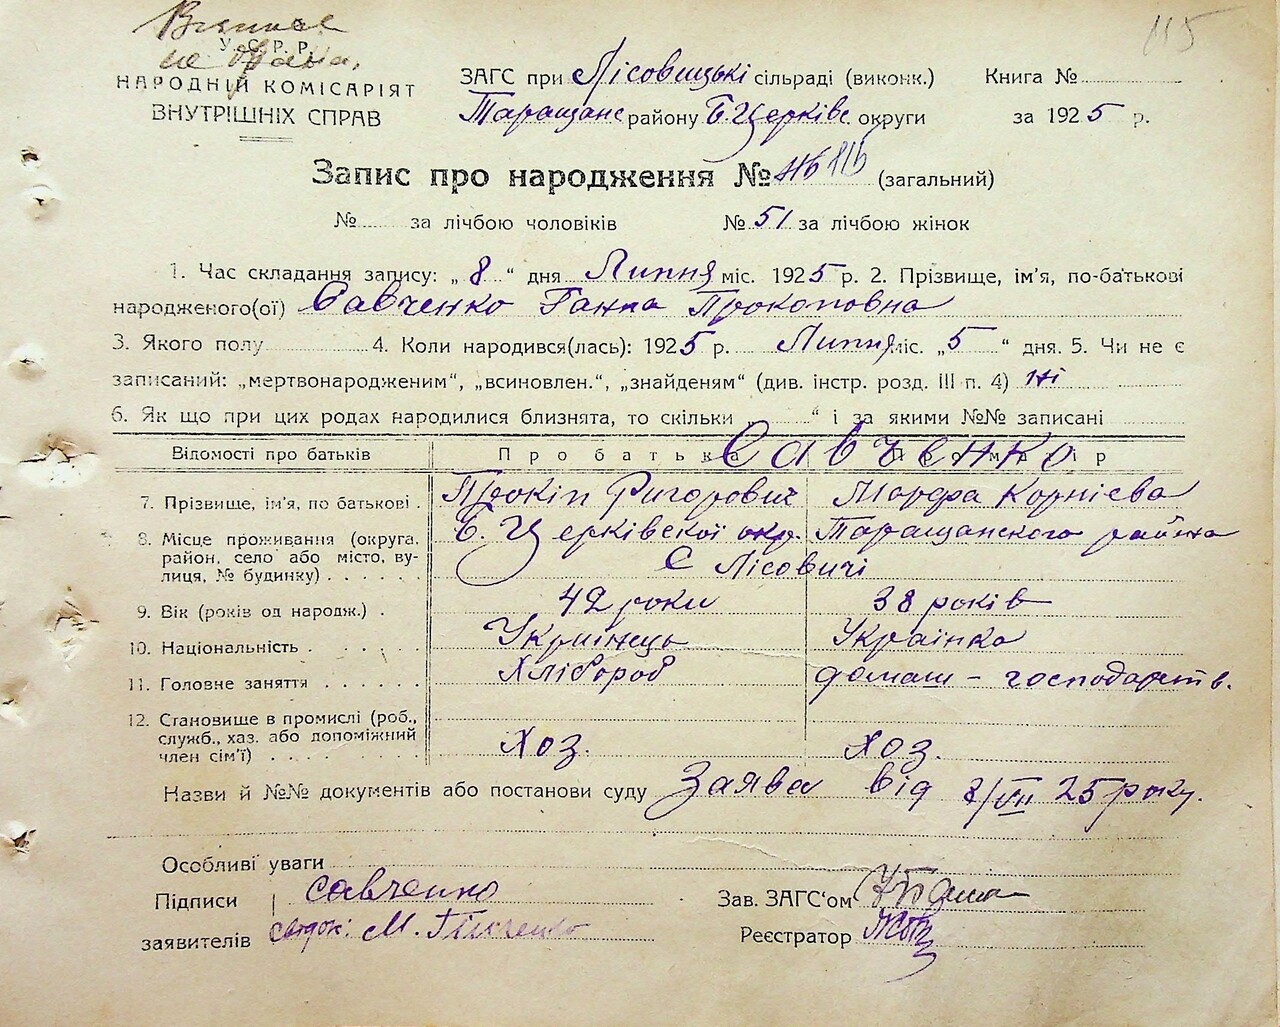 115
У.С.Р.Р.
НАРОДНІЙ КОМІСАРІЯТ
ВНУТРІШНІХ СПРАВ
ЗАГС при Лісовицькі сільраді (виконк.)
Таращанс району Б Церківс округи
Книга №
за 1925 р.
Запис про народження № 116 (загальний)
№ за лічбою чоловіків № 51 за лічбою жінок
1. Час складання запису: „ 8 “ дня Липня міс. 1925 р. 2. Прізвище, ім'я, по-батькові
народженого(ої) Савченко Ганна Прокоповна
3. Якого полу 4. Коли народився(лась): 1925 р. Липня міс. „ 5 “ дня. 5. Чи не є
записаний: „мертвонародженим“, „всиновлен.“, „знайденям“ (див. інстр. розд. III п. 4) ні
6. Як що при цих родах народилися близнята, то скільки “ і за якими №№ записані
Відомості про батьків Про батька Савченко
7. Прізвище, ім'я, по батькові . Прокіп Григорович Марфа Корнієва
8. Місце проживання (округа, Б. Церківскої окр. Таращанского района
район, село або місто, ву- с Лісовичі
лиця, № будинку) . . . . . .
9. Вік (років од народж.) . 42 роки 38 років
10. Національність . . . . . Українець Українка
11. Головне заняття . . . . . . Хлібороб домаш - господарств.
12. Становище в промислі (роб.,
служб., хаз. або допоміжний Хоз. Хоз.
член сім'ї) . . . . . . . .
Назви й №№ документів або постанови суду Заява від 8/VII 25 року.
Особливі уваги
Підписи Савченко
заявителів М.
Зав. ЗАГС'ом
Реєстратор